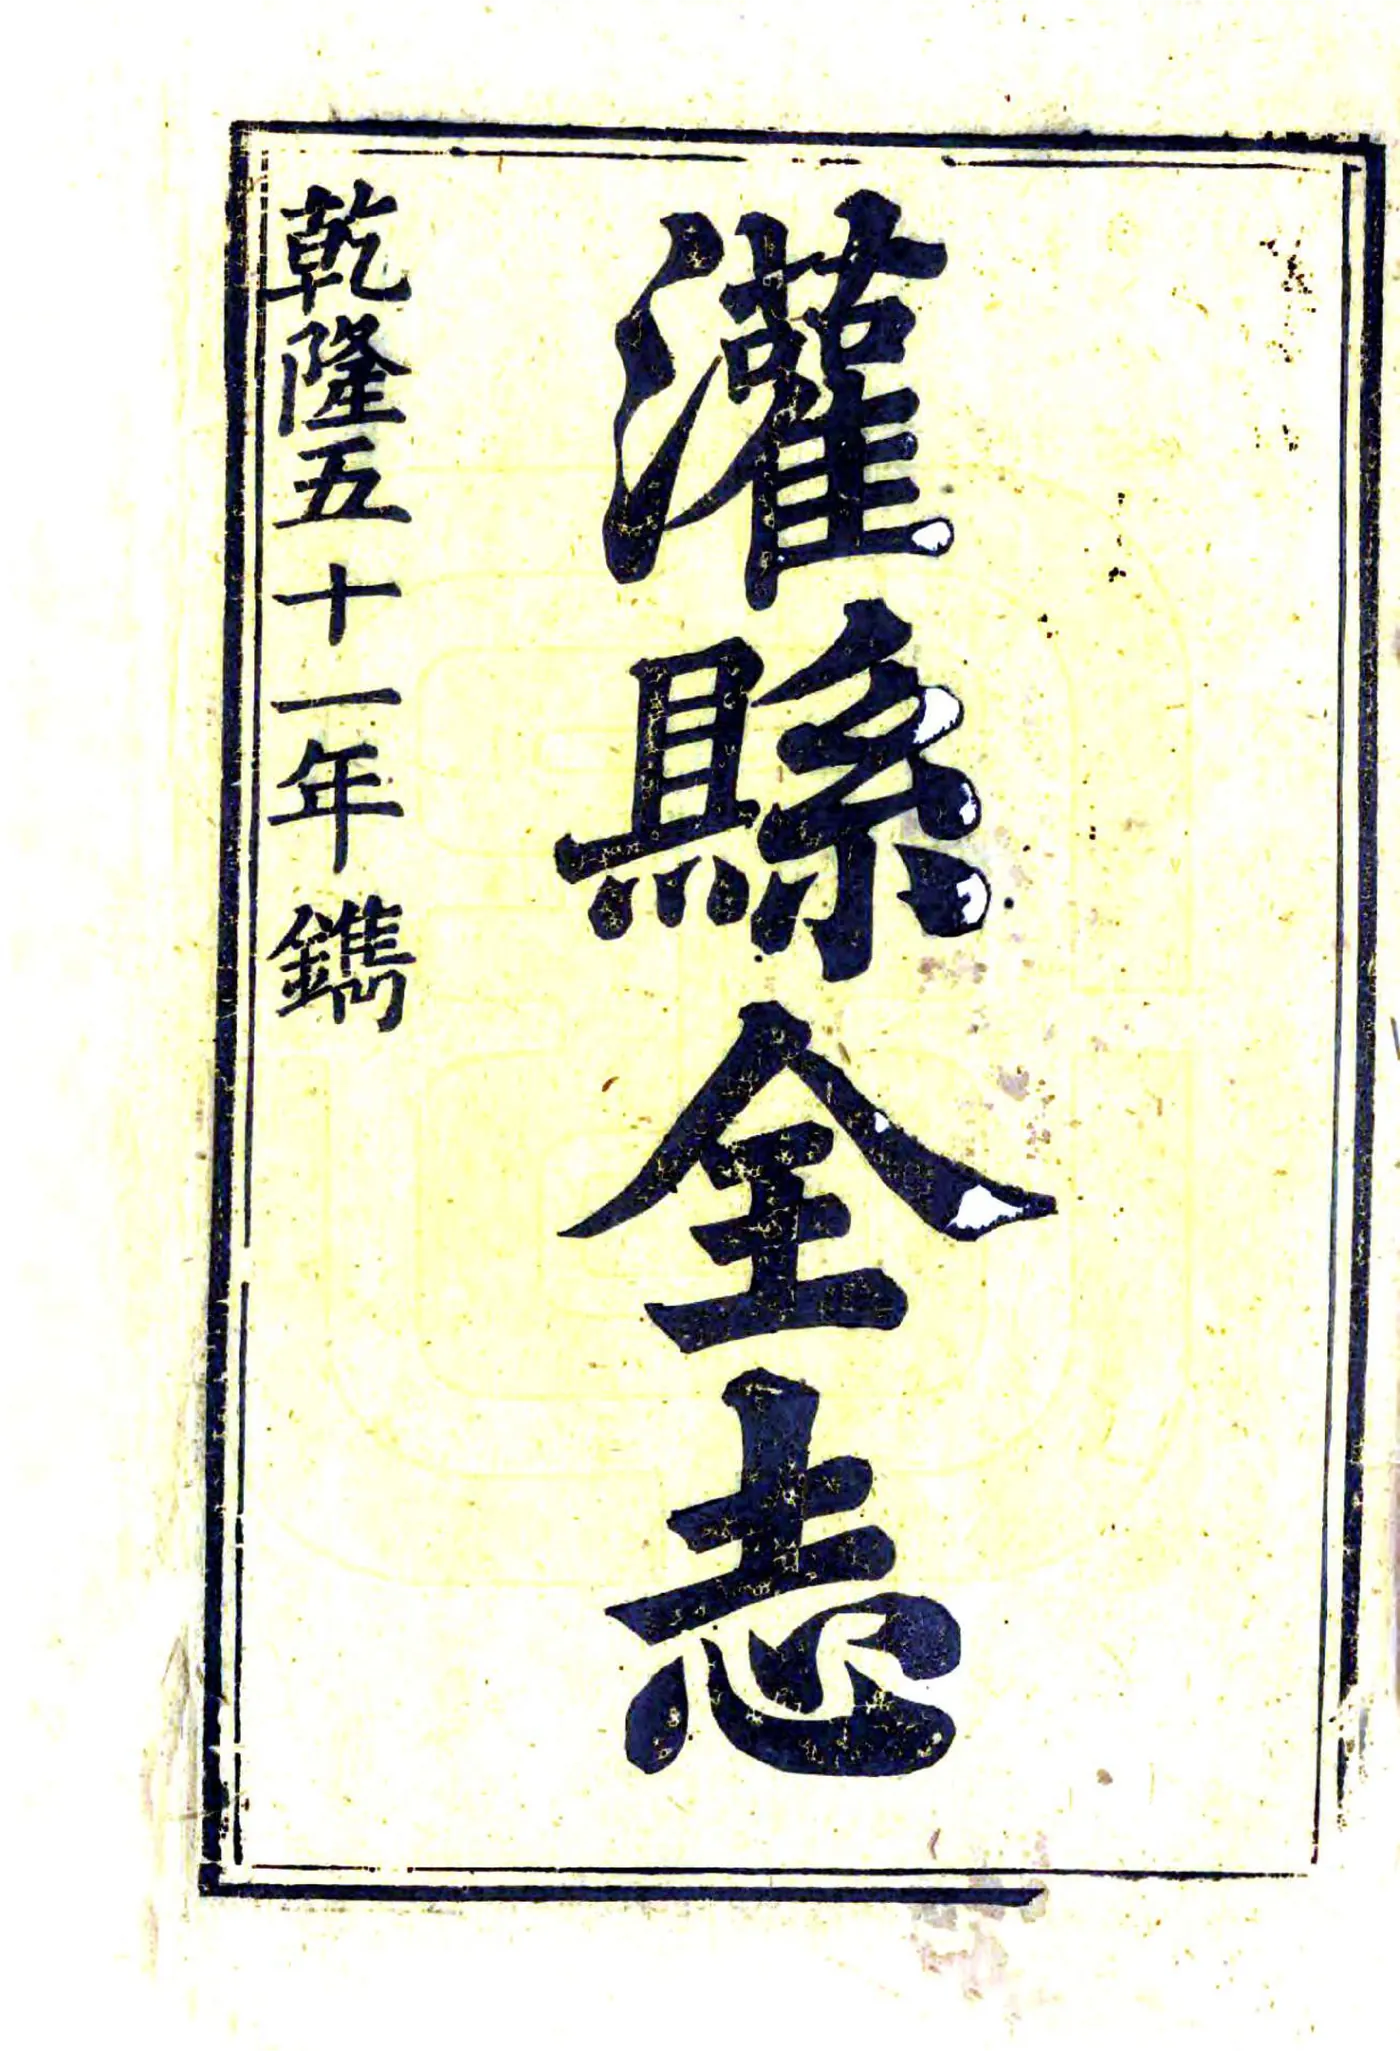 灌縣全志
乾隆五十一年鐫